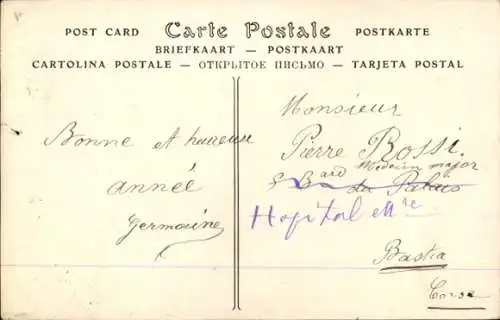 POST CARD Carte Postale POSTKARTE
BRIEFKAART — POSTKAART
CARTOLINA POSTALE — ОТКРЫТОЕ ПИСЬМО — TARJETA POSTAL
Bonne et heureuse
année
Germaine
Monsieur
Pierre Rossi
Medecin major
5 Bard du Palais
Hopital Mre
Bastia
Corse